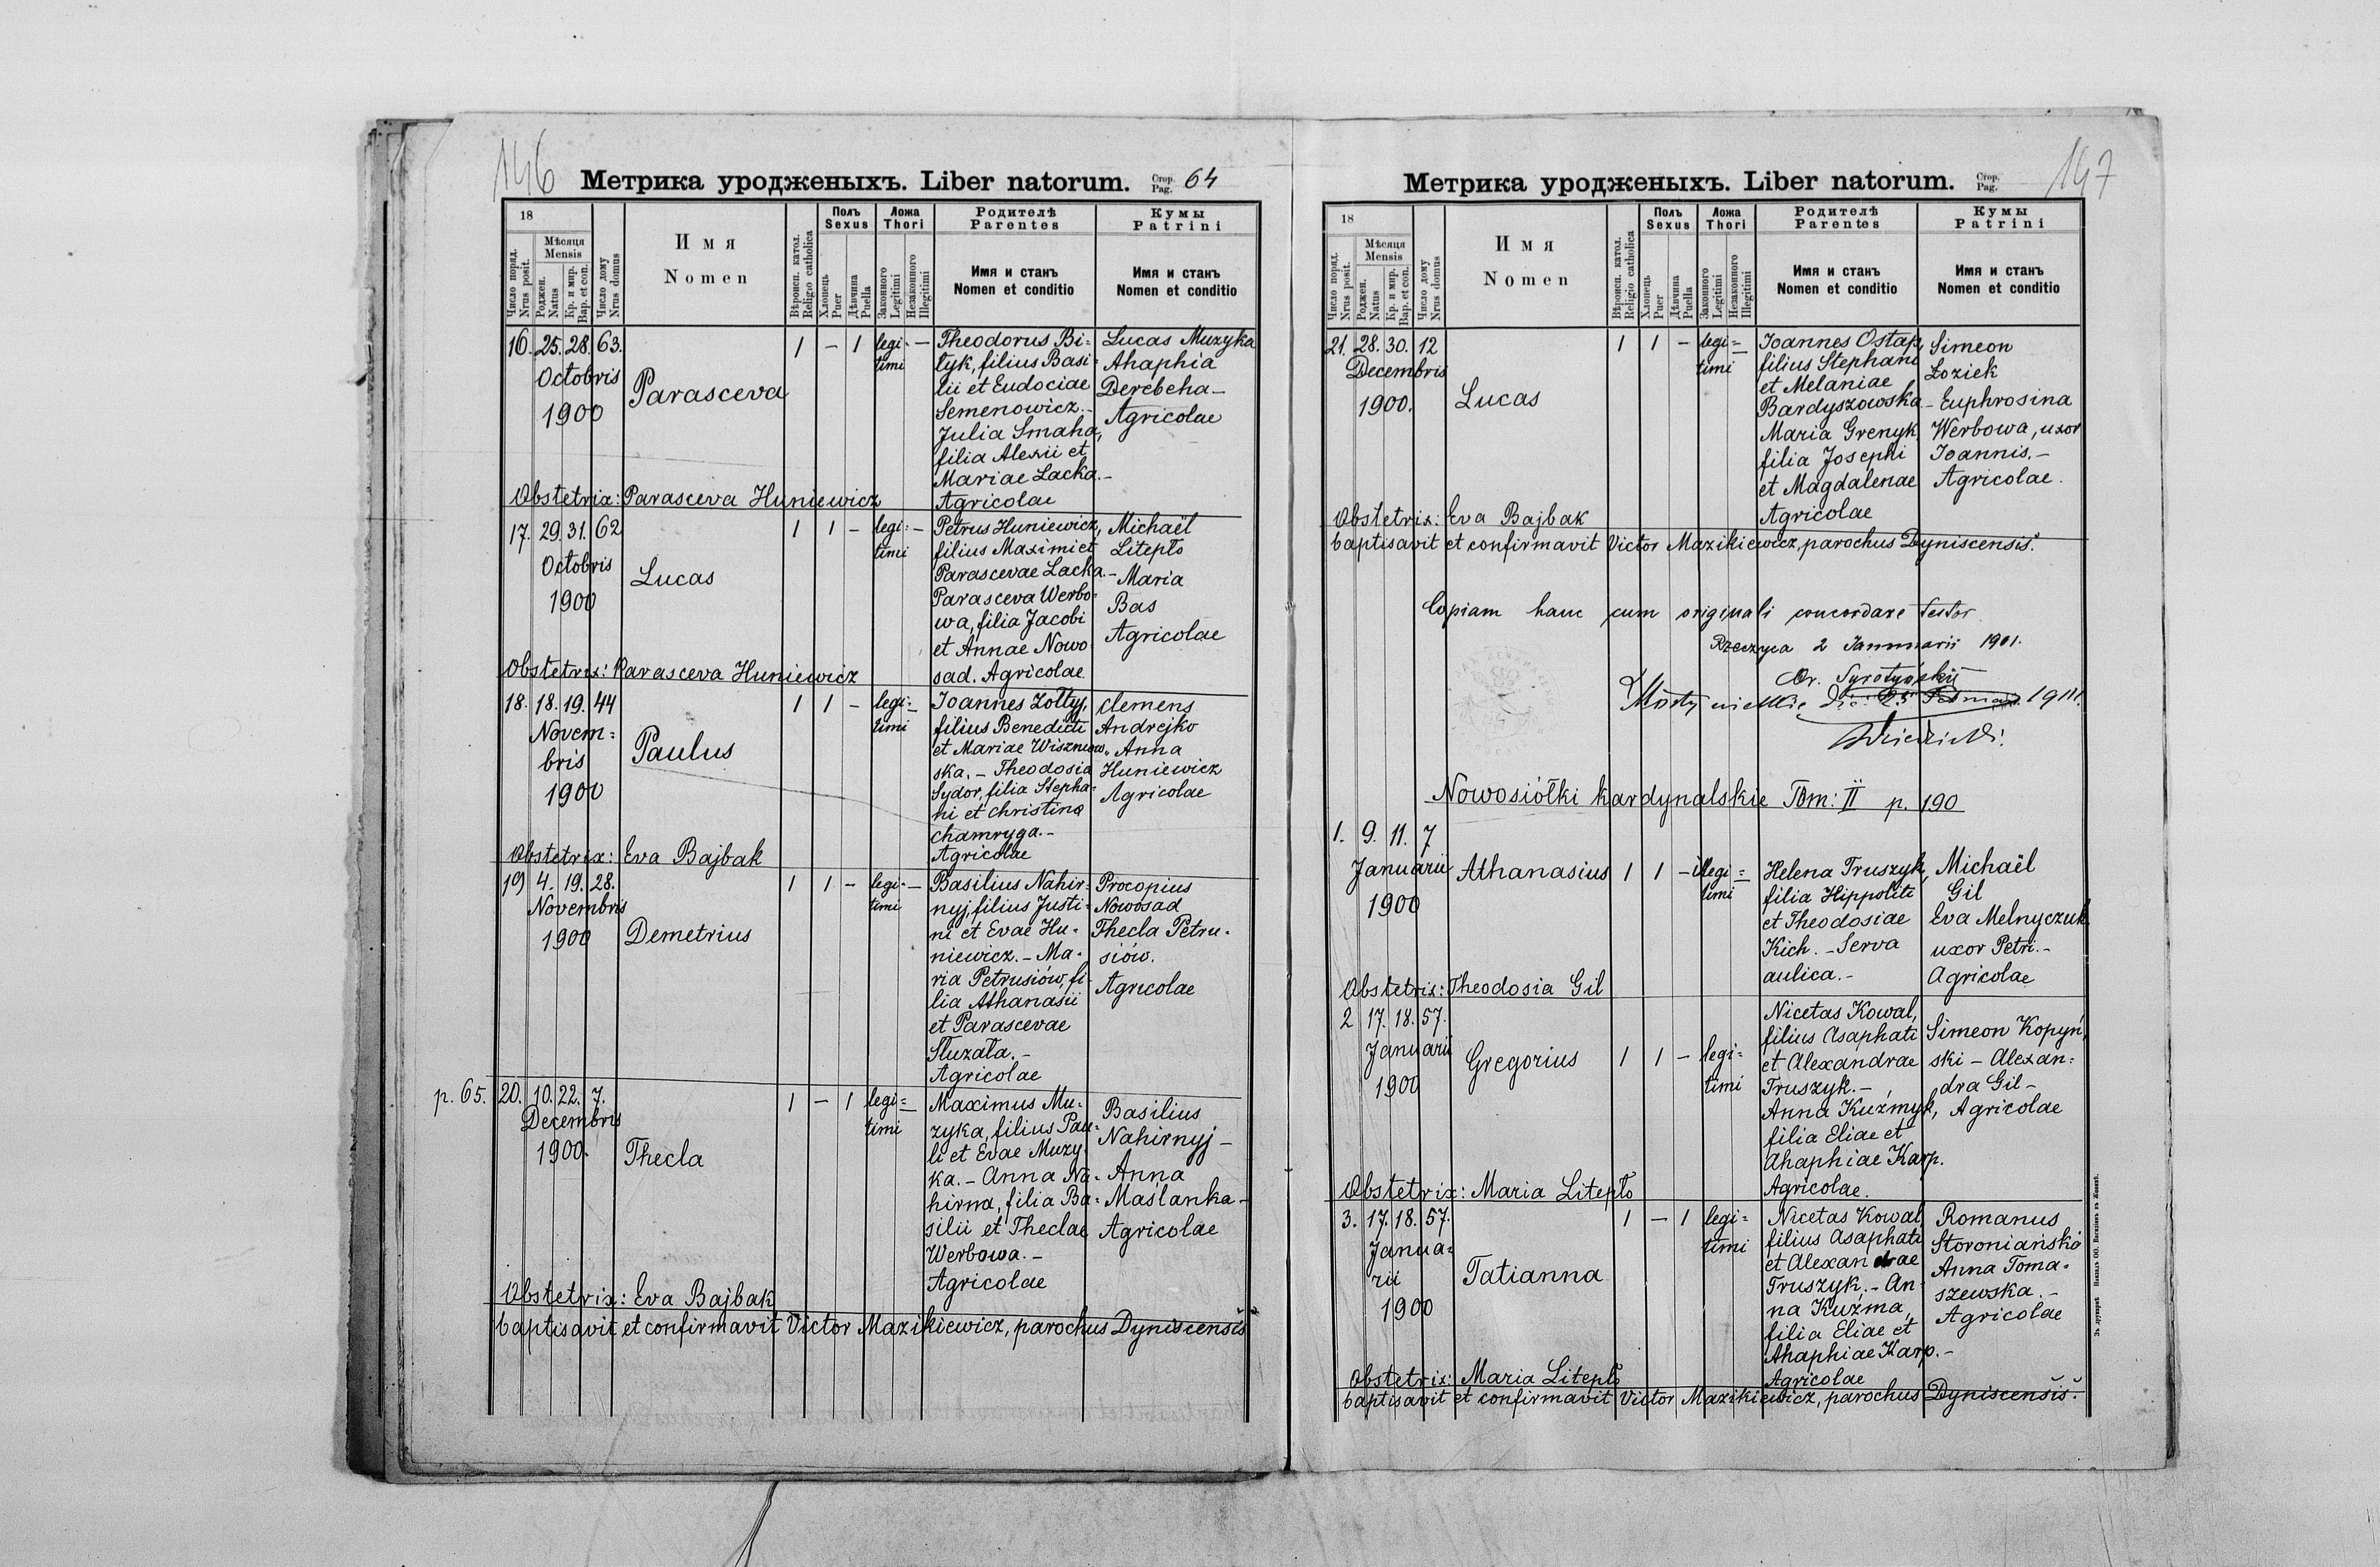 146
Метрика уродженыхъ. Liber natorum. Стор. Pag. 64
18
Число поряд. Nrus posit.
Мѣсяця Mensis
Роджен. Natus
Кр. и мир. Bap. et con.
Число дому Nrus domus
Имя
Nomen
Вѣроисп. катол. Religio catholica
Полъ Sexus
Хлопець Puer
Дѣвчина Puella
Ложа Thori
Законного Legitimi
Незаконного Illegitimi
Родителѣ Parentes
Имя и станъ
Nomen et conditio
Кумы Patrini
Имя и станъ
Nomen et conditio
16. 25. 28. 63.
Octobris
1900
Parasceva
1 – 1 legi= –
timi
Theodorus Bi=
łyk, filius Basi=
lii et Eudociae
Semenowicz.–
Julia Smaha,
filia Alexii et
Mariae Lacka.–
Agricolae
Lucas Muzyka
Ahaphia
Derebcha–
Agricolae
Obstetrix: Parasceva Huniewicz
17. 29. 31. 62
Octobris
1900
Lucas
1 1 – legi= –
timi
Petrus Huniewicz,
filius Maximi et
Parascevae Lacka.–
Parasceva Werbo=
wa, filia Jacobi
et Annae Nowo
sad. Agricolae
Michaël
Litepło
Maria
Bas
Agricolae
Obstetrix: Parasceva Huniewicz
18. 18. 19. 44
Novem=
bris
1900
Paulus
1 1 – legi= –
timi
Joannes Żołtyj,
filius Benedicti
et Mariae Wiszniow=
ska. – Theodosia
Sydor, filia Stepha=
ni et Christina
Chamryga.–
Agricolae
Clemens
Andrejko
Anna
Huniewicz
Agricolae
Obstetrix: Eva Bajbak
19 4. 19. 28.
Novembris
1900
Demetrius
1 1 – legi= –
timi
Basilius Nahir=
nyj, filius Justi=
ni et Evae Hu=
niewicz. – Ma=
ria Petrusiów, fi=
lia Athanasii
et Parascevae
Służała.–
Agricolae
Procopius
Nowosad
Thecla Petru=
siów.
Agricolae
p. 65. 20. 10. 22. 7.
Decembris
1900.
Thecla
1 – 1 legi= –
timi
Maximus Mu=
zyka, filius Pau=
li et Evae Muzy
ka. – Anna Na=
hirna, filia Ba=
silii et Theclae
Werbowa.–
Agricolae
Basilius
Nahirnyj –
Anna
Maślanka –
Agricolae
Obstetrix: Eva Bajbak
baptisavit et confirmavit Victor Mazikiewicz, parochus Dyniscensis
147
Метрика уродженыхъ. Liber natorum. Стор. Pag.
18
Число поряд. Nrus posit.
Мѣсяця Mensis
Роджен. Natus
Кр. и мир. Bap. et con.
Число дому Nrus domus
Имя
Nomen
Вѣроисп. катол. Religio catholica
Полъ Sexus
Хлопець Puer
Дѣвчина Puella
Ложа Thori
Законного Legitimi
Незаконного Illegitimi
Родителѣ Parentes
Имя и станъ
Nomen et conditio
Кумы Patrini
Имя и станъ
Nomen et conditio
21. 28. 30. 12
Decembris
1900.
Lucas
1 1 – legi= –
timi
Joannes Ostap,
filius Stephani
et Melaniae
Bardyszowska
Maria Grenyk
filia Josephi
et Magdalenae
Agricolae
Simeon
Łoziek
– Euphrosina
Werbowa, uxor
Joannis.–
Agricolae.
Obstetrix: Eva Bajbak
baptisavit et confirmavit Victor Mazikiewicz, parochus Dyniscensis.
Copiam hanc cum originali concordare testor
Rzeczyca 2 Januarii 1901.
Or. Syrotyński
1911.
Nowosiółki kardynalskie Tom: II p. 190
1. 9. 11. 7
Januarii
1900
Athanasius
1 1 – illegi=
timi
Helena Truszyk,
filia Hippoliti
et Theodosiae
Kich. – Serva
aulica.–
Michaël
Gil
Eva Melnyczuk
uxor Petri.–
Agricolae
Obstetrix: Theodosia Gil
2 17. 18. 57.
Januarii
1900
Gregorius
1 1 – legi=
timi
Nicetas Kowal,
filius Asaphati
et Alexandrae
Truszyk.–
Anna Kuźmyk,
filia Eliae et
Ahaphiae Karp.
Agricolae.
Simeon Kopyń
ski – Alexan=
dra Gil –
Agricolae
Obstetrix: Maria Litepło
3. 17. 18. 57.
Janua=
rii
1900
Tatianna
1 – 1 legi=
timi
Nicetas Kowal
filius Asaphati
et Alexandrae
Truszyk. – An
na Kuźma,
filia Eliae et
Ahaphiae Karp.–
Agricolae
Romanus
Storoniański
Anna Toma=
szewska.–
Agricolae
Obstetrix: Maria Litepło
baptisavit et confirmavit Victor Mazikiewicz, parochus Dyniscensis.